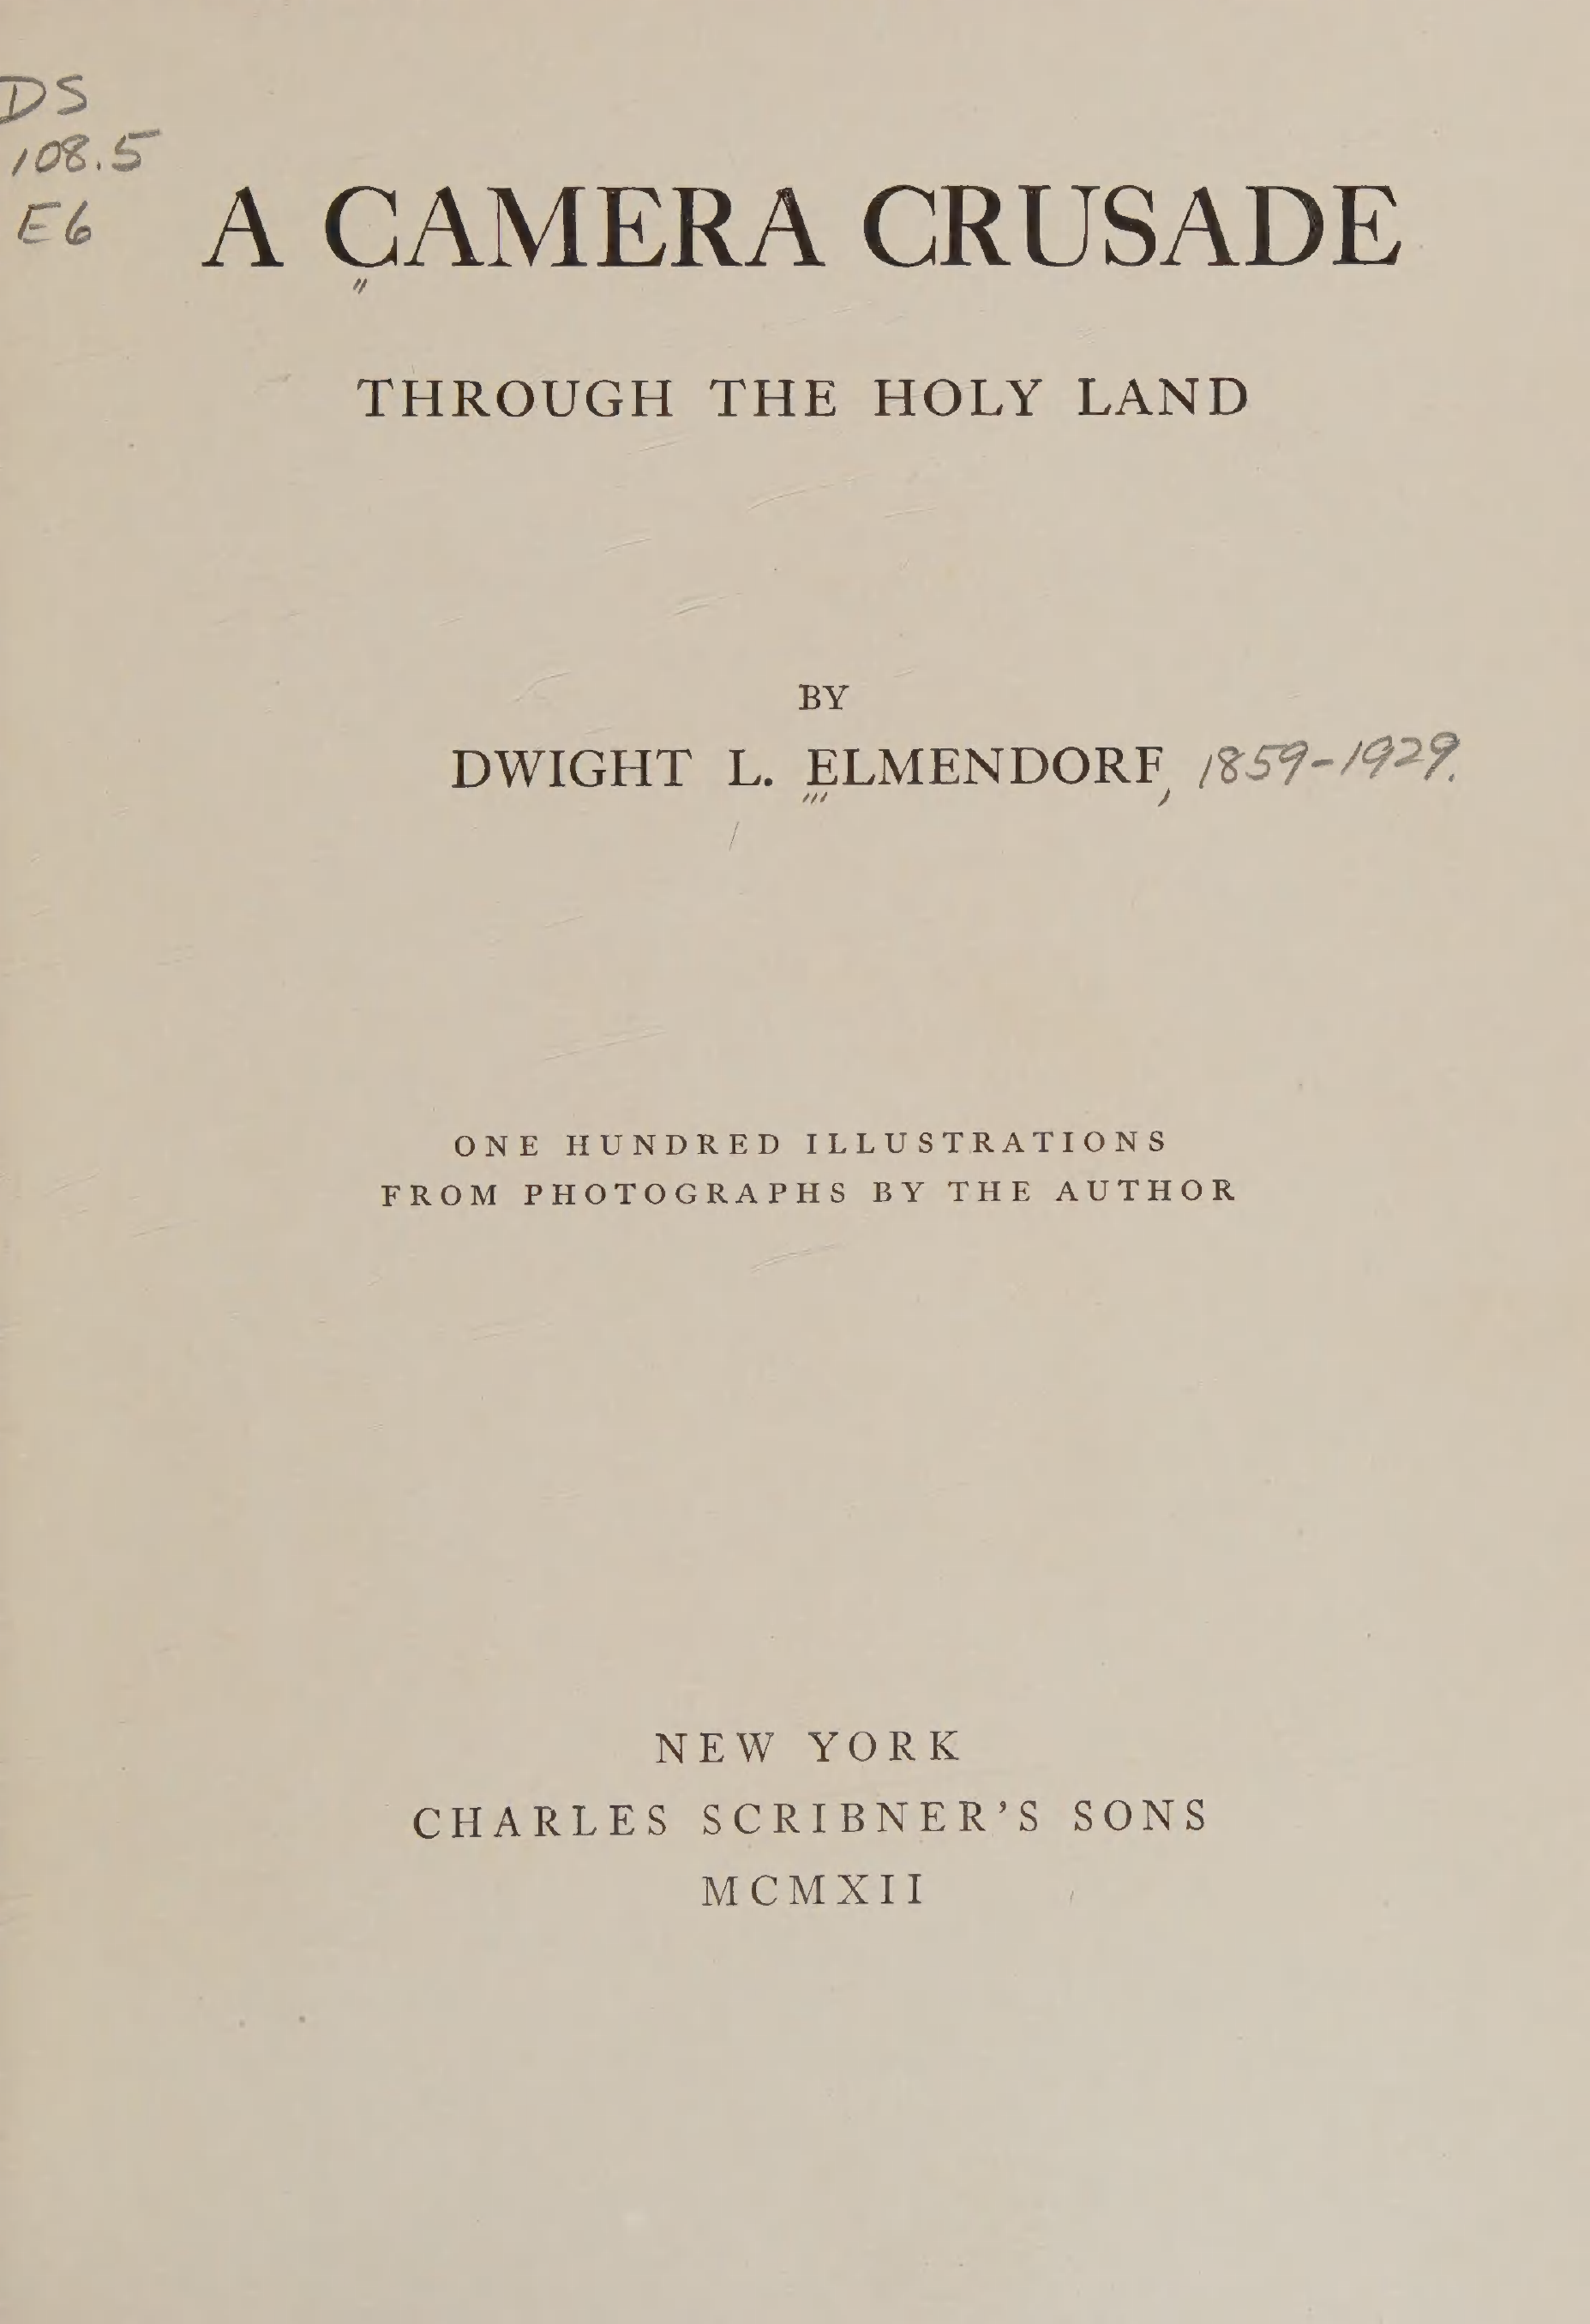 DS
108.5
E6
A CAMERA CRUSADE
THROUGH THE HOLY LAND
BY
DWIGHT L. ELMENDORF, 1859-1929.
ONE HUNDRED ILLUSTRATIONS
FROM PHOTOGRAPHS BY THE AUTHOR
NEW YORK
CHARLES SCRIBNER’S SONS
MCMXII